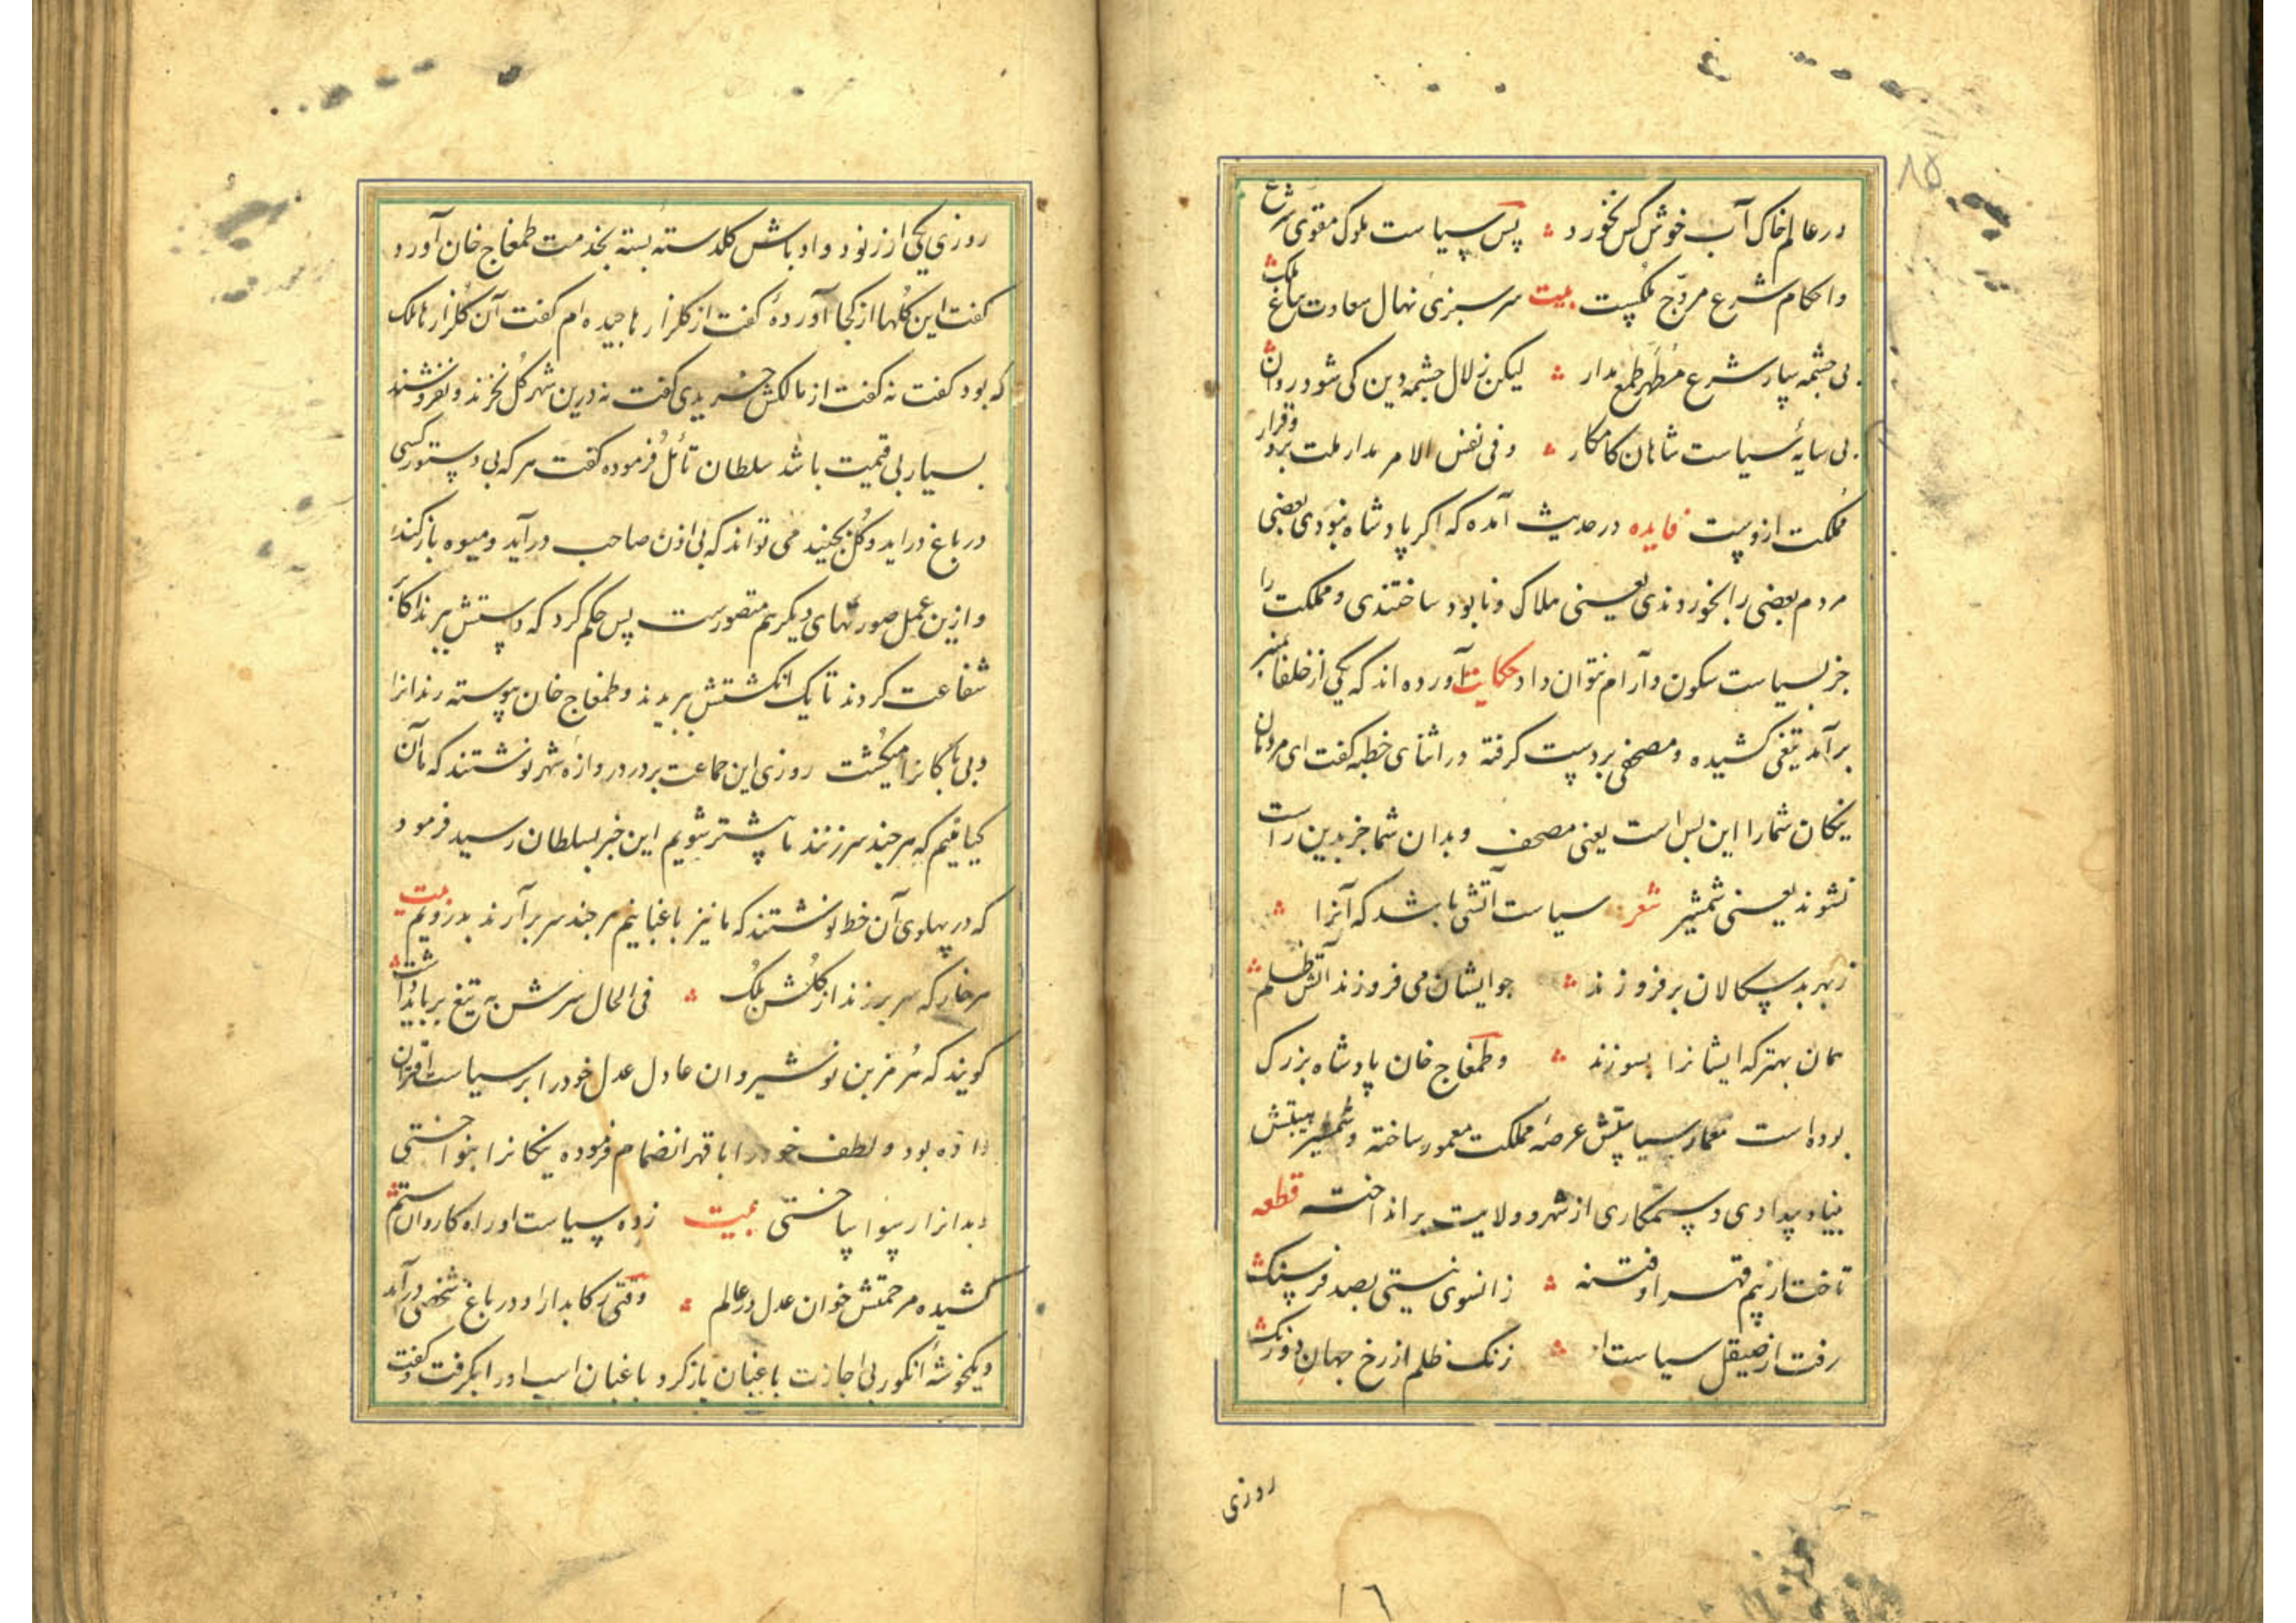 در عالم خاک آب خوش کس نخورد پس سیاست ملوک مقوی شرع
و احکام شرع مروّج ملکست بیت سرسبزی نهال سعادت بباغ ملک
بی چشمه سار شرع مطهر طمع مدار لیکن زلال چشمه دین کی شود روان
بی سایهٔ سیاست شاهان کامکار وفی نفس الامر مدار ملت برو و قرار
مملکت ازوست فایده در حدیث آمده که اکر پادشاه نبودی بعضی
مردم بعضی را بخوردندی یعنی هلاک و نابود ساختندی و مملکت را
جز بسیاست سکون و آرام نتوان داد حکایت آورده اند که یکی از خلفا بمنبر
برآمد تیغی کشیده و مصحفی بر دست کرفته در اثنای خطبه کفت ای مردمان
نیکان شما را این بس است یعنی مصحف و بدان شما جز بدین راست
نشوند یعنی شمشیر شعر سیاست آتشی باشد که آنرا
ز بهر بد سکالان برفروزند جو ایشان می فروزند آتش ظلم
همان بهتر که ایشانرا بسوزند و طمغاج خان پادشاه بزرک
بوده است معمار سیاستش عرصهٔ مملکت معمور ساخته و شمشیر هیبتش
بنیاد بیدادی و ستمکاری از شهر و ولایت برانداخته قطعه
تاخت از بیم قهر او فتنه زانسوی نیستی بصد فرسنک
رفت از صیقل سیاست او زنک ظلم از رخ جهان دورنک
روزی
۸۵
۱۶
روزی یکی از رنود و اوباش کلدسته بسته بخدمت طمغاج خان آورد
کفت این کلها از کجا آوردهٔ کفت از کلزارها چیده ام کفت آن کلزارها ملک
که بود کفت نه کفت از مالکش خریدی کفت نه درین شهر کل نخرند و نفروشند
بسیار بی قیمت باشد سلطان تأمل فرموده کفت هر که بی دستور کسی
در باغ درآید و کل بچیند می تواند که بی اذن صاحب درآید و میوه باز کند
و ازین عمل صورتهای دیکر هم متصورست پس حکم کرد که دستش ببرند اکابر
شفاعت کردند تا یک انکشتش ببریدند و طمغاج خان پیوسته رندانرا
و بی باکانرا میکشت روزی این جماعت بر در دروازه شهر نوشتند که ما آن
کیاهیم که هر چند سر زنند ما پیشتر شویم این خبر بسلطان رسید فرمود
که در پهلوی آن خط نوشتند که ما نیز باغبانیم هر چند سر برآرند بدرویم بیت
هر خار که سر برزند از کلشن ملک فی الحال سرش به تیغ برباید داشت
کویند که هرمز بن نوشیروان عادل عدل خود را بر سیاست اقتران
داده بود و لطف خود را با قهر انضمام فرموده نیکانرا بنواختی
و بدانرا رسوا ساختی بیت زده سیاست او راه کاروان ستم
کشیده مرحمتش خوان عدل در عالم وقتی رکابدار او در باغ شخصی درآمد
و یکخوشهٔ انکور بی اجازت باغبان باز کرد باغبان اسب او را بکرفت و کفت